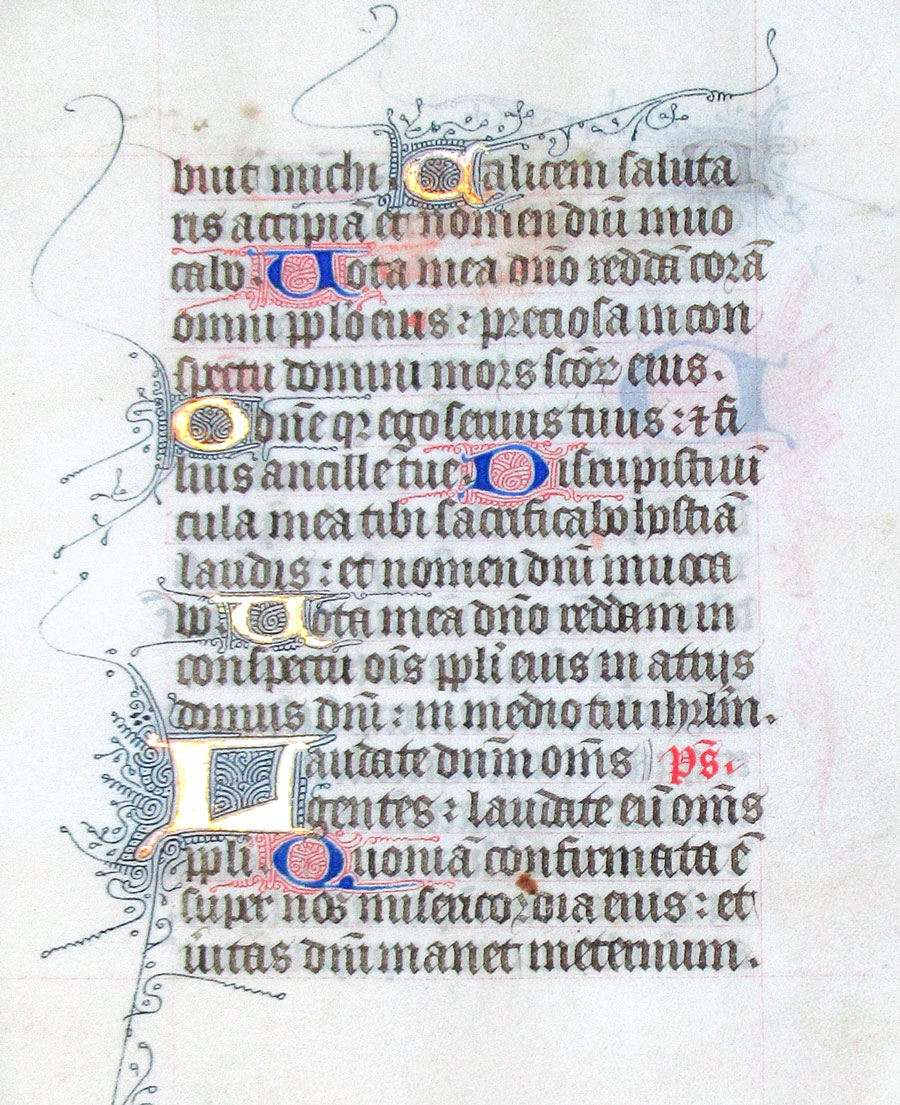 buit michi Calicem saluta
ris accipiā et nomen dn̄i inuo
cabo. Uota mea dn̄o reddā corā
omni pplo eius : preciosa in con
spectu domini mors scōꝝ eius.
O dn̄e qꝛ ego seruus tuus : ⁊ fi
lius ancille tue Dirupisti uī
cula mea tibi sacrificabo hostiā
laudis : et nomen dn̄i inuoca
bo Uota mea dn̄o reddam in
conspectu oīs ppli eius in atrijs
domus dn̄i : in medio tui ihrlm̄.
Laudate dnm̄ om̄s p̄s.
gentes : laudate eū om̄s
ppli Quoniā confirmata ē
super nos misericordia eius : et
ūitas dn̄i manet ineternum.